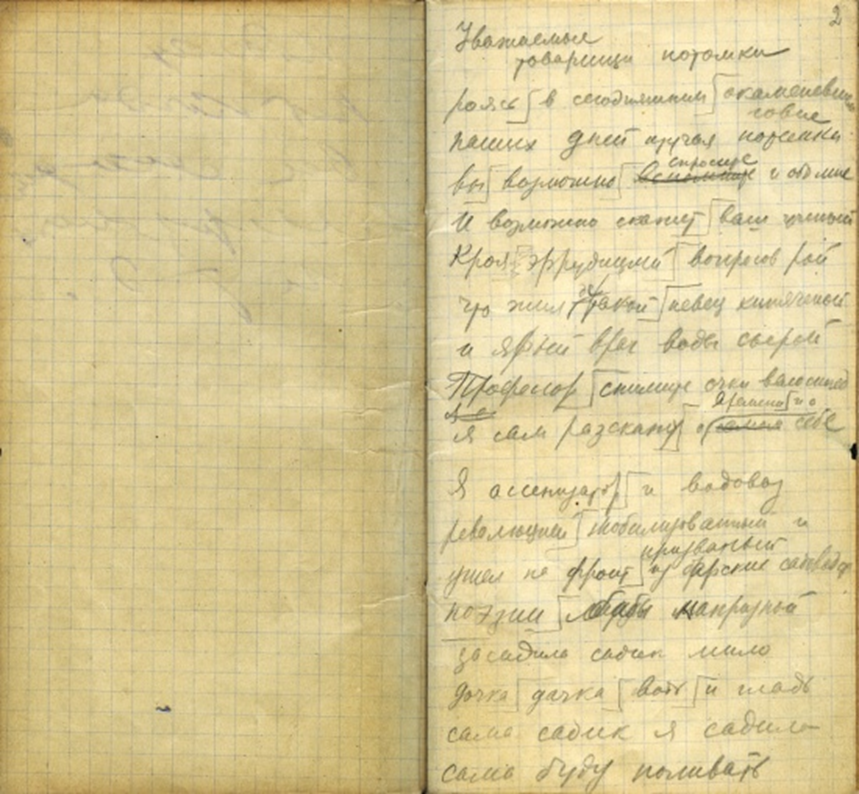 2
Уважаемые
товарищи потомки
роясь в сегодняшнем окаменевшем
говне
наших дней изучая потемки
спросите
вы возможно вспомните и обо мне
И возможно скажет ваш ученый
Кроя эррудицией вопросов рой
что жил такой певец кипяченой
и ярый враг воды сырой
Професор снимите очки велосипед
времени и о
Я сам разскажу о себе
Я ассенизатор и водовоз
революцией мобилизованный и
призваный
ушел на фронт из барских садоводств
поэзии бабы капризной
засадила садик мило
дочка дачка водь и гладь
сама садик я садила
сама буду поливать